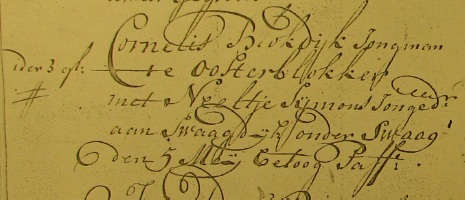 Cornelis Blokdijk Jongman
ider 3 gl: te Oosterblokker
met Neeltje Sijmons Jongedr
aan Swaagdijk onder Swaag
den 5 Meij betoog Pass: